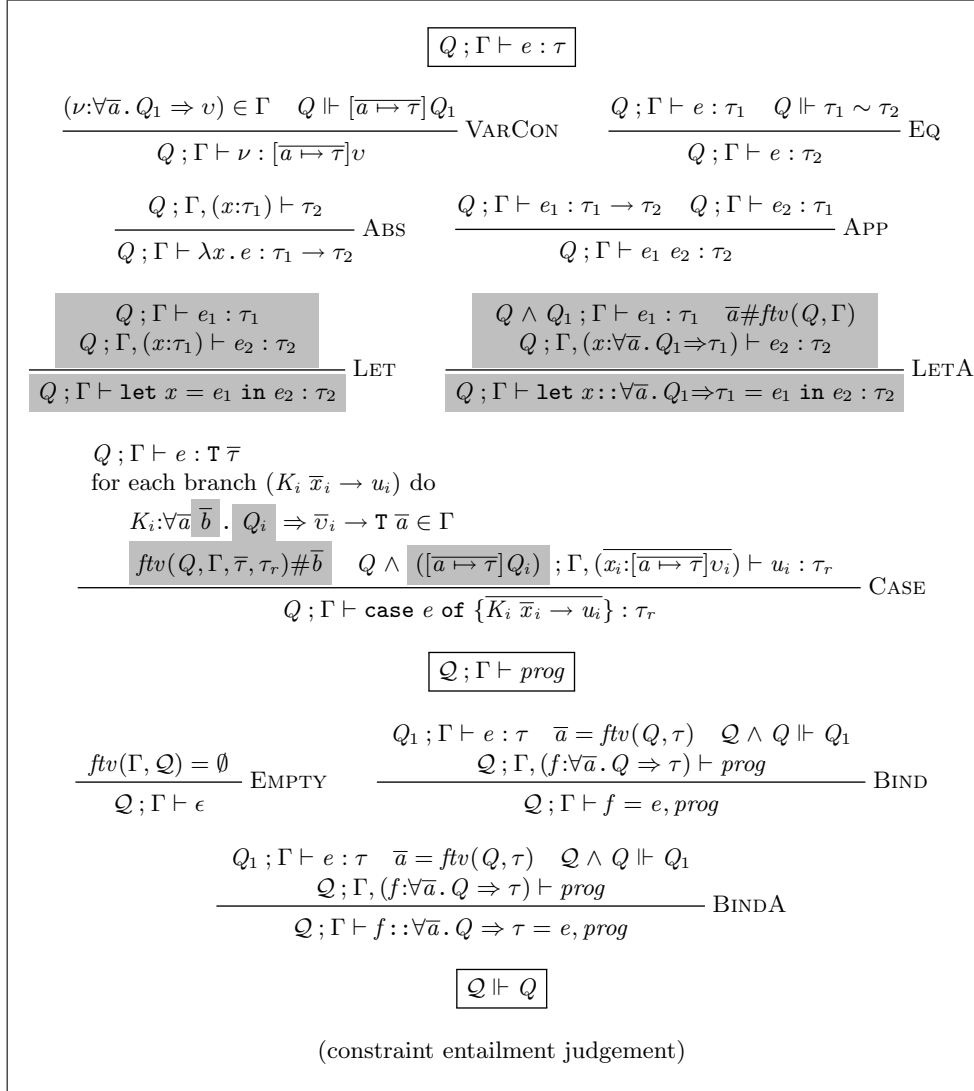 Q ; Γ ⊢ e : τ
(ν:∀a̅ . Q₁ ⇒ υ) ∈ Γ   Q ⊩ [a̅ ↦ τ̅]Q₁
Q ; Γ ⊢ ν : [a̅ ↦ τ̅]υ
VARCON
Q ; Γ ⊢ e : τ₁   Q ⊩ τ₁ ∼ τ₂
Q ; Γ ⊢ e : τ₂
EQ
Q ; Γ, (x:τ₁) ⊢ τ₂
Q ; Γ ⊢ λx . e : τ₁ → τ₂
ABS
Q ; Γ ⊢ e₁ : τ₁ → τ₂   Q ; Γ ⊢ e₂ : τ₁
Q ; Γ ⊢ e₁ e₂ : τ₂
APP
Q ; Γ ⊢ e₁ : τ₁
Q ; Γ, (x:τ₁) ⊢ e₂ : τ₂
Q ; Γ ⊢ let x = e₁ in e₂ : τ₂
LET
Q ∧ Q₁ ; Γ ⊢ e₁ : τ₁   a̅#ftv(Q, Γ)
Q ; Γ, (x:∀a̅ . Q₁⇒τ₁) ⊢ e₂ : τ₂
Q ; Γ ⊢ let x::∀a̅ . Q₁⇒τ₁ = e₁ in e₂ : τ₂
LETA
Q ; Γ ⊢ e : T τ̅
for each branch (Kᵢ x̅ᵢ → uᵢ) do
Kᵢ:∀a̅ b̅ . Qᵢ ⇒ υ̅ᵢ → T a̅ ∈ Γ
ftv(Q, Γ, τ̅, τᵣ)#b̅   Q ∧ ([a̅ ↦ τ̅]Qᵢ) ; Γ, (xᵢ:[a̅ ↦ τ̅]υᵢ) ⊢ uᵢ : τᵣ
Q ; Γ ⊢ case e of {Kᵢ x̅ᵢ → uᵢ} : τᵣ
CASE
𝒬 ; Γ ⊢ prog
ftv(Γ, 𝒬) = ∅
𝒬 ; Γ ⊢ ϵ
EMPTY
Q₁ ; Γ ⊢ e : τ   a̅ = ftv(Q, τ)   𝒬 ∧ Q ⊩ Q₁
𝒬 ; Γ, (f:∀a̅ . Q ⇒ τ) ⊢ prog
𝒬 ; Γ ⊢ f = e, prog
BIND
Q₁ ; Γ ⊢ e : τ   a̅ = ftv(Q, τ)   𝒬 ∧ Q ⊩ Q₁
𝒬 ; Γ, (f:∀a̅ . Q ⇒ τ) ⊢ prog
𝒬 ; Γ ⊢ f::∀a̅ . Q ⇒ τ = e, prog
BINDA
𝒬 ⊩ Q
(constraint entailment judgement)